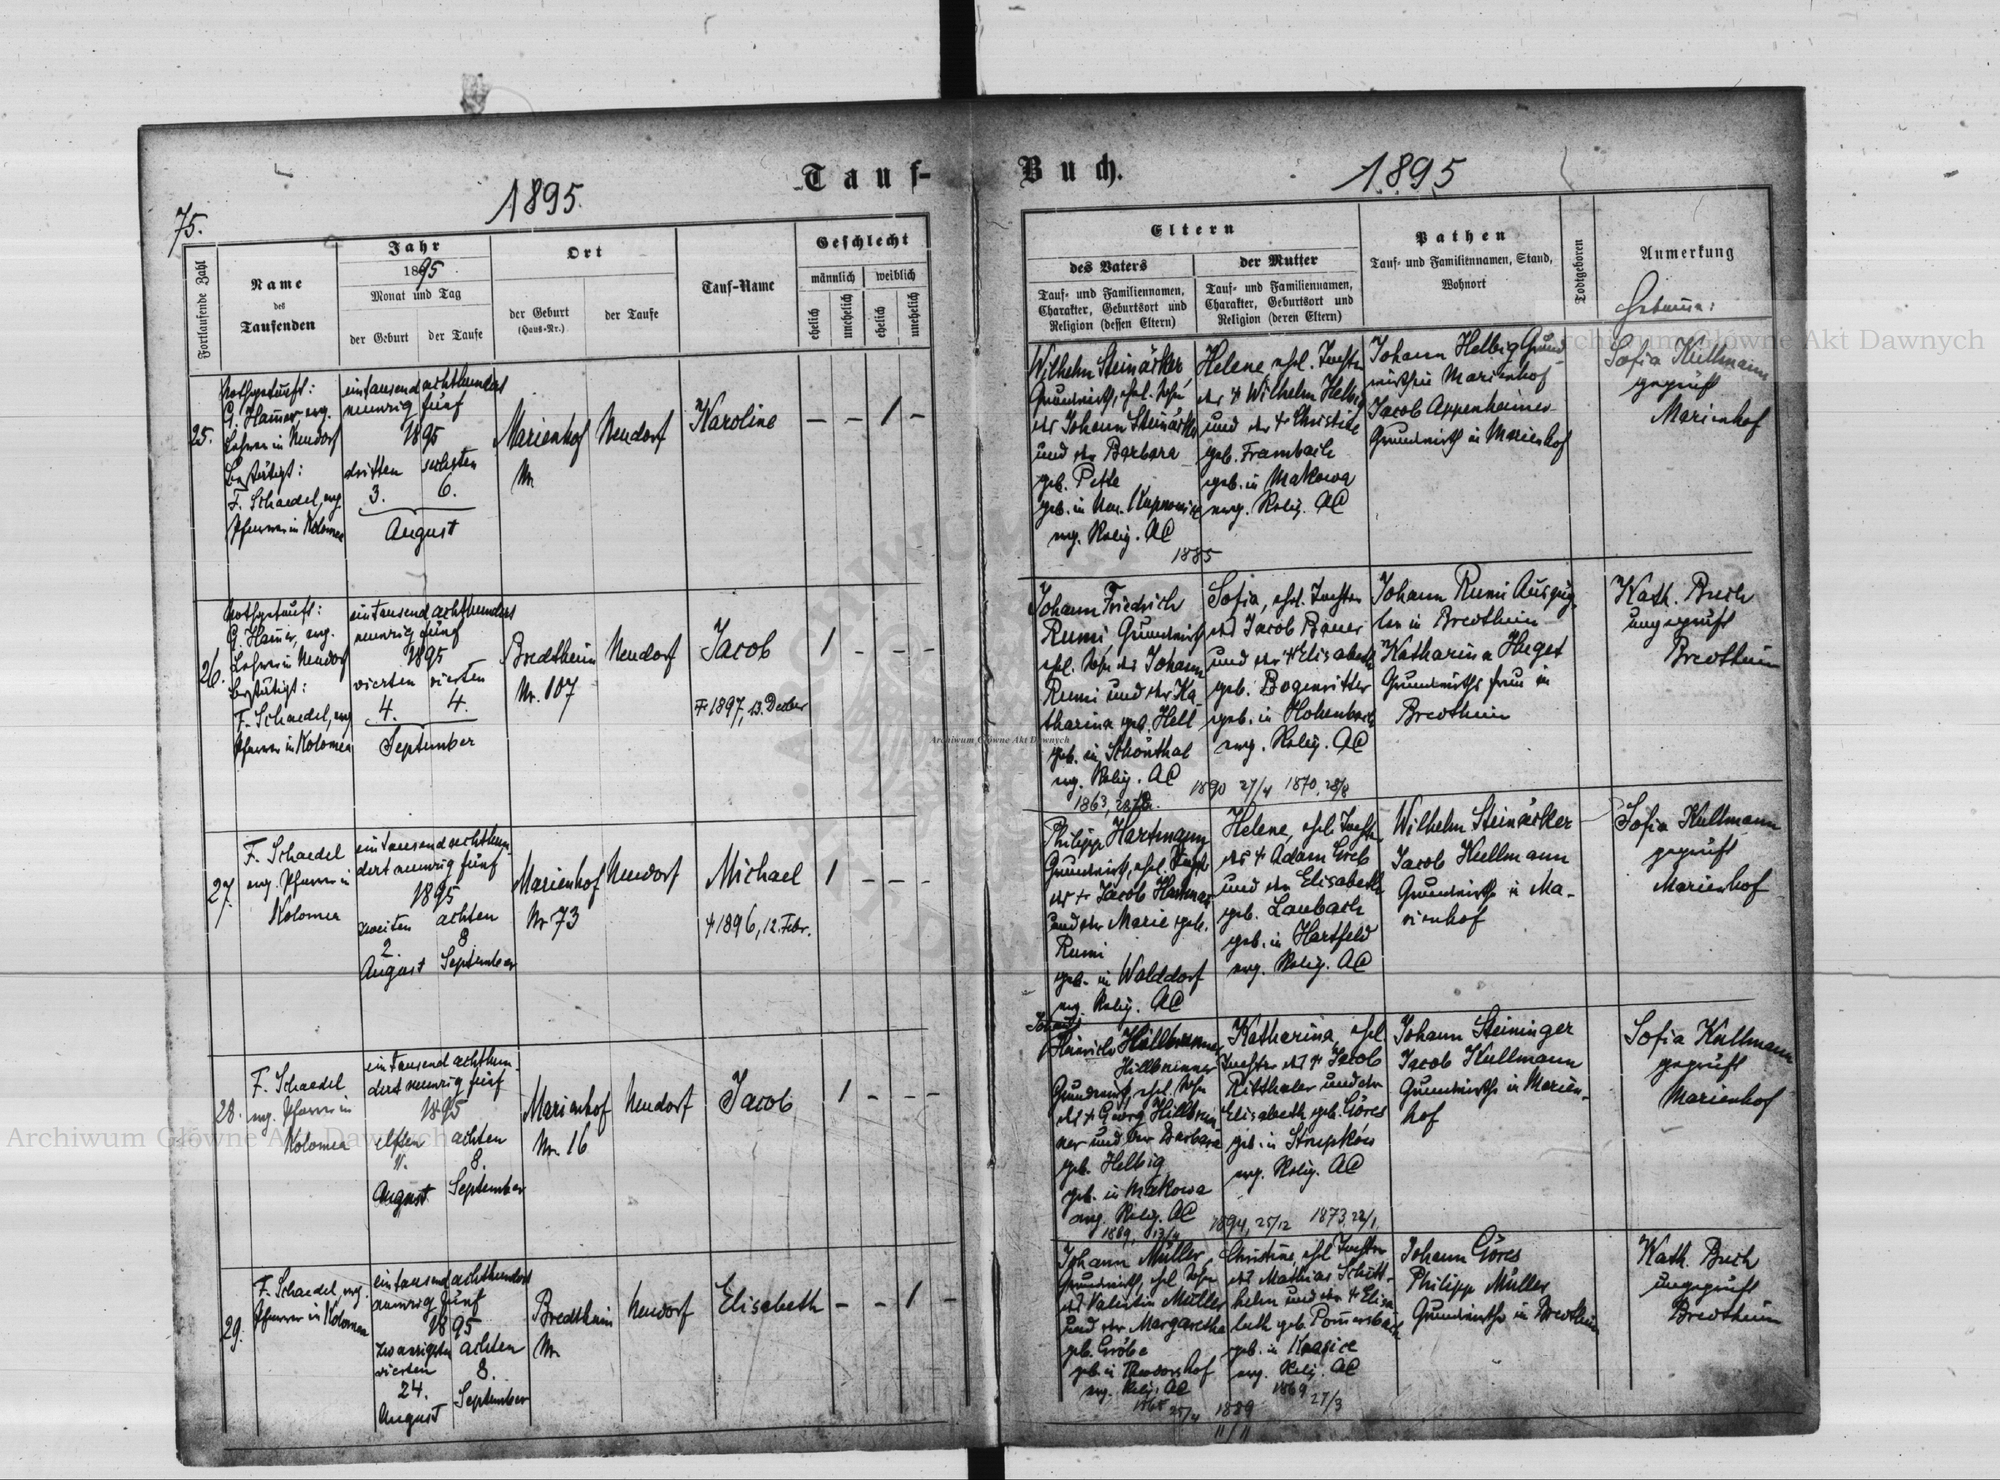 Tauf-
Buch.
1895.
1895
75.
Fortlaufende Zahl
Name
des
Taufenden
Jahr
1895.
Monat und Tag
der Geburt
der Taufe
Ort
der Geburt
(Haus-Nr.)
der Taufe
Tauf-Name
Geschlecht
männlich
weiblich
ehelich
unehelich
ehelich
unehelich
Eltern
des Vaters
Tauf- und Familiennamen,
Charakter, Geburtsort und
Religion (dessen Eltern)
der Mutter
Tauf- und Familiennamen,
Charakter, Geburtsort und
Religion (deren Eltern)
Pathen
Tauf- und Familiennamen, Stand,
Wohnort
Todtgeboren
Anmerkung
25.
Nothgetauft:
G. Hamer, evg.
Lehrer in Neudorf
Bestätigt:
F. Schaedel, evg
Pfarrer in Kolomea
eintausend achthundert
neunzig fünf
1895
dritten sechsten
3. 6.
August
Marienhof
Nr.
Neudorf
Karoline
— — 1 —
Wilhelm Steinäcker
Grundwirth, ehel. Sohn
des Johann Steinäcker
und der Barbara
geb. Pette
evg. Relig. AC
1885
Helene, ehel. Tochter
des + Wilhelm Helbig
und der + Christine
geb. Frambach
geb. in Makowa
evg. Relig. AC
Johann Helbig Grund-
wirth in Marienhof
Jacob Appenheimer
Grundwirth in Marienhof
Sofia Kullmann
geprüft
Marienhof
26.
Nothgetauft:
G. Hamer, evg.
Lehrer in Neudorf
Bestätigt:
F. Schaedel, evg
Pfarrer in Kolomea
eintausend achthundert
neunzig fünf
1895
vierten vierten
4. 4.
September
Bredtheim
Nr. 107
Neudorf
Jacob
+ 1897, 13. Decber
1 - - -
Johann Friedrich
Rumi Grundwirth
ehel. Sohn des Johann
Rumi und der Ka-
tharina geb. Hell
geb. in Schönthal
evg. Relig. AC
1863,
Sofia, ehel. Tochter
des Jacob Bauer
und der + Elisabeth
geb. Bogenritter
geb. in Hohenbach
evg. Relig. AC
1890 27/4 1870, 28/8
Johann Rumi Auszüg-
ler in Bredtheim
Katharina Huget
Grundwirths frau in
Bredtheim
Kath. Buch
ungeprüft
Bredtheim
27.
F. Schaedel
evg. Pfarrer in
Kolomea
eintausend achthun-
dert neunzig fünf
1895
zweiten achten
2. 8
August September
Marienhof
Nr 73
Neudorf
Michael
+ 1896, 12. Febr.
1 - - -
Philipp Hartmann
Grundwirth, ehel. Sohn
des + Jacob Hartman
und der Marie geb.
Rumi
geb. in Walddorf
evg. Relig. AC
Helene, ehel. Tochter
des + Adam Greb
und der Elisabeth
geb. Laubach
geb. in Hartfeld
evg. Relig. AC
Wilhelm Steinäcker
Jacob Kullmann
Grundwirthe in Ma-
rienhof
Sofia Kullmann
geprüft
Marienhof
28.
F. Schaedel
evg. Pfarrer in
Kolomea
eintausend achthun-
dert neunzig fünf
1895
elften achten
11. 8.
August September
Marienhof
Nr. 16
Neudorf
Jacob
1 - - -
Heinrich Hillbrunner
Hillbrunner
Grundwirth, ehel. Sohn
des + Georg Hillbrun-
ner und der Barbara
geb. Helbig
geb. in Makowa
evg. Relig. AC
1869, 13/4
Katharina, ehel.
Tochter des + Jacob
Ritthaler und der
Elisabeth geb. Göres
geb. in Strupków
evg. Relig. AC
1894, 25/12 1873, 22/1
Johann Steininger
Jacob Kullmann
Grundwirthe in Marien-
hof
Sofia Kullmann
geprüft
Marienhof
29.
F. Schaedel, evg.
Pfarrer in Kolomea
eintausend achthundert
neunzig fünf
1895
zwanzigsten achten
vierten 8.
24. September
August
Bredtheim
Nr.
Neudorf
Elisabeth
- - 1 -
Johann Müller,
Grundwirth, ehel. Sohn
des Valentin Müller
und der Margaretha
geb. Gröbe
geb. in Theodorshof
evg. Relig. AC
25/4
Christine, ehel. Tochter
des Mathias Schütt-
helm und der + Elisa-
beth geb. Pomersbach
geb. in Knasice
evg. Relig. AC
1869 27/3
1889
11/11
Johann Göres
Philipp Müller
Grundwirthe in Bredtheim
Kath. Buch
ungeprüft
Bredtheim
Archiwum Główne Akt Dawnych
Archiwum Główne Akt Dawnych
Archiwum Główne Akt Dawnych